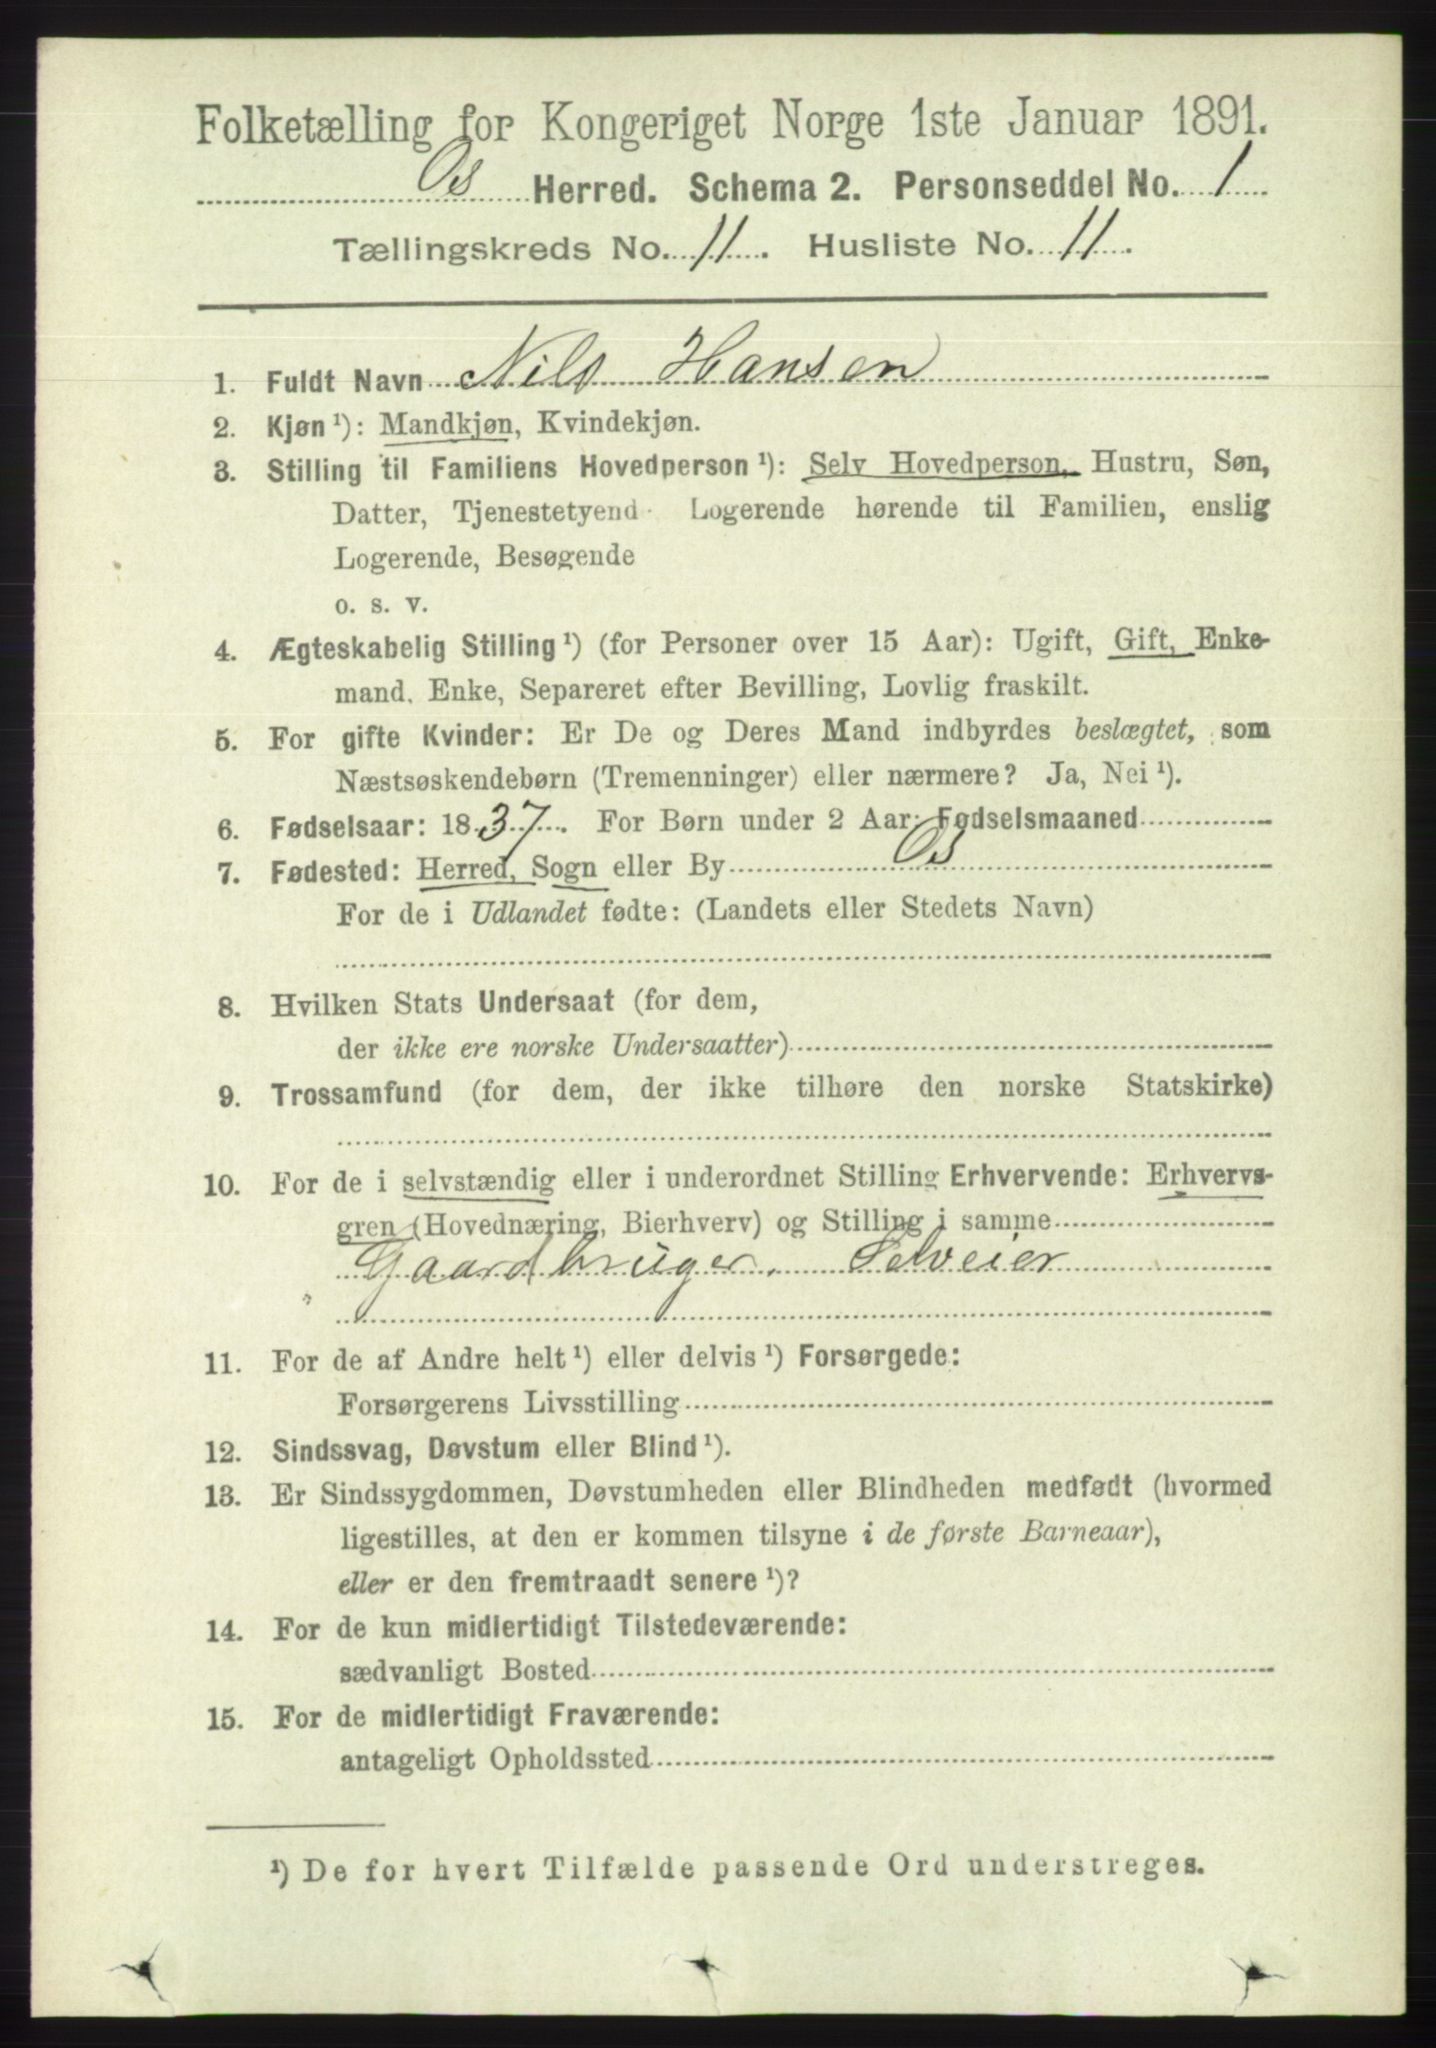 Folketælling for Kongeriget Norge 1ste Januar 1891.
Os Herred. Schema 2. Personseddel No. 1
Tællingskreds No. 11. Husliste No. 11.
1. Fuldt Navn Nils Hansen
2. Kjøn¹): Mandkjøn, Kvindekjøn.
3. Stilling til Familiens Hovedperson¹): Selv Hovedperson, Hustru, Søn,
Datter, Tjenestetyend Logerende hørende til Familien, enslig
Logerende, Besøgende
o. s. v.
4. Ægteskabelig Stilling¹) (for Personer over 15 Aar): Ugift, Gift, Enke-
mand, Enke, Separeret efter Bevilling, Lovlig fraskilt.
5. For gifte Kvinder: Er De og Deres Mand indbyrdes beslægtet, som
Næstsøskendebørn (Tremenninger) eller nærmere? Ja, Nei¹).
6. Fødselsaar: 1837. For Børn under 2 Aar: Fødselsmaaned
7. Fødested: Herred, Sogn eller By Os
For de i Udlandet fødte: (Landets eller Stedets Navn)
8. Hvilken Stats Undersaat (for dem,
der ikke ere norske Undersaatter)
9. Trossamfund (for dem, der ikke tilhøre den norske Statskirke)
10. For de i selvstændig eller i underordnet Stilling Erhvervende: Erhvervs-
gren (Hovednæring, Bierhverv) og Stilling i samme
Gaardbruger. Selveier
11. For de af Andre helt¹) eller delvis¹) Forsørgede:
Forsørgerens Livsstilling
12. Sindssvag, Døvstum eller Blind¹).
13. Er Sindssygdommen, Døvstumheden eller Blindheden medfødt (hvormed
ligestilles, at den er kommen tilsyne i de første Barneaar),
eller er den fremtraadt senere¹)?
14. For de kun midlertidigt Tilstedeværende:
sædvanligt Bosted
15. For de midlertidigt Fraværende:
antageligt Opholdssted
¹) De for hvert Tilfælde passende Ord understreges.